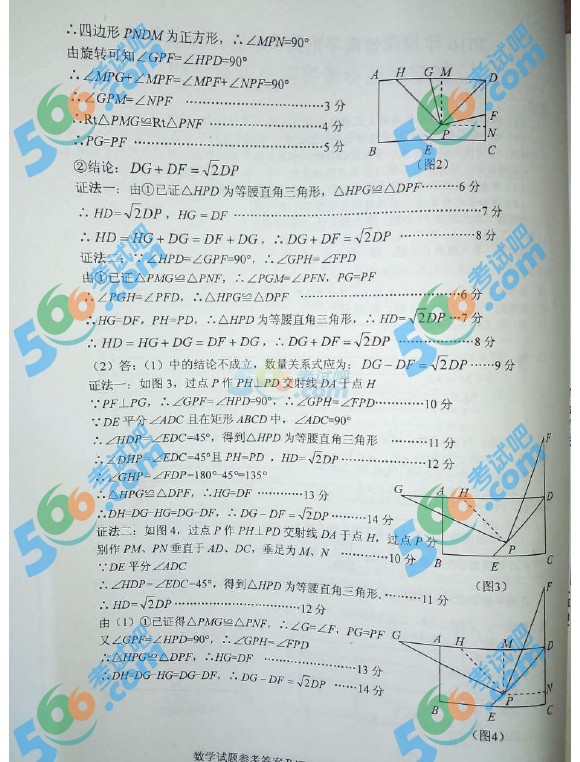 ∴四边形 PNDM 为正方形，∴∠MPN=90°
由旋转可知∠GPF=∠HPD=90°
∴∠MPG+∠MPF=∠MPF+∠NPF=90°
∴∠GPM=∠NPF ……………………3 分
∴Rt△PMG≌Rt△PNF ……………………4 分
∴PG=PF ……………………5 分
A H G M D
F
P N
B E C
(图2)
②结论：DG+DF=√2DP
证法一：由①已证△HPD 为等腰直角三角形，△HPG≌△DPF………6 分
∴HD=√2DP，HG=DF ……………………7 分
∴HD=HG+DG=DF+DG，∴DG+DF=√2DP ……………8 分
证法二：∵∠HPD=∠GPF=90°，∴∠GPH=∠FPD
由①已证△PMG≌△PNF，∴∠PGM=∠PFN，PG=PF
∴∠PGH=∠PFD，∴△HPG≌△DPF ……………………6 分
∴HG=DF，PH=PD，∴△HPD 为等腰直角三角形，∴HD=√2DP…7 分
∴HD=HG+DG=DF+DG，∴DG+DF=√2DP ……………8 分
（2）答：（1）中的结论不成立，数量关系式应为：DG−DF=√2DP……9 分
证法一：如图 3，过点 P 作 PH⊥PD 交射线 DA 于点 H
∵PF⊥PG，∴∠GPF=∠HPD=90°，∴∠GPH=∠FPD…………10 分
∵DE 平分∠ADC 且在矩形 ABCD 中，∠ADC=90°
∴∠HDP=∠EDC=45°，得到△HPD 为等腰直角三角形 ………11 分
∴∠DHP=∠EDC=45°且 PH=PD，HD=√2DP……………12 分
∴∠GHP=∠FDP=180°-45°=135°
∴△HPG≌△DPF，∴HG=DF …………13 分
∴DH=DG-HG=DG-DF，∴DG−DF=√2DP………14 分
F
G A H D
P
B E C
(图3)
证法二：如图 4，过点 P 作 PH⊥PD 交射线 DA 于点 H，过点 P 分
别作 PM、PN 垂直于 AD、DC，垂足为 M、N ……………10 分
∵DE 平分∠ADC
∴∠HDP=∠EDC=45°，得到△HPD 为等腰直角三角形………11 分
∴HD=√2DP……………………12 分
由（1）①已证得△PMG≌△PNF，∴∠G=∠F，PG=PF
又∠GPF=∠HPD=90°，∴∠GPH=∠FPD
∴△HPG≌△DPF，∴HG=DF ……………………13 分
∴DH=DG-HG=DG-DF，∴DG−DF=√2DP ……14 分
F
G A H M D
P N
B E C
(图4)
数学试题参考答案
566考试吧.com